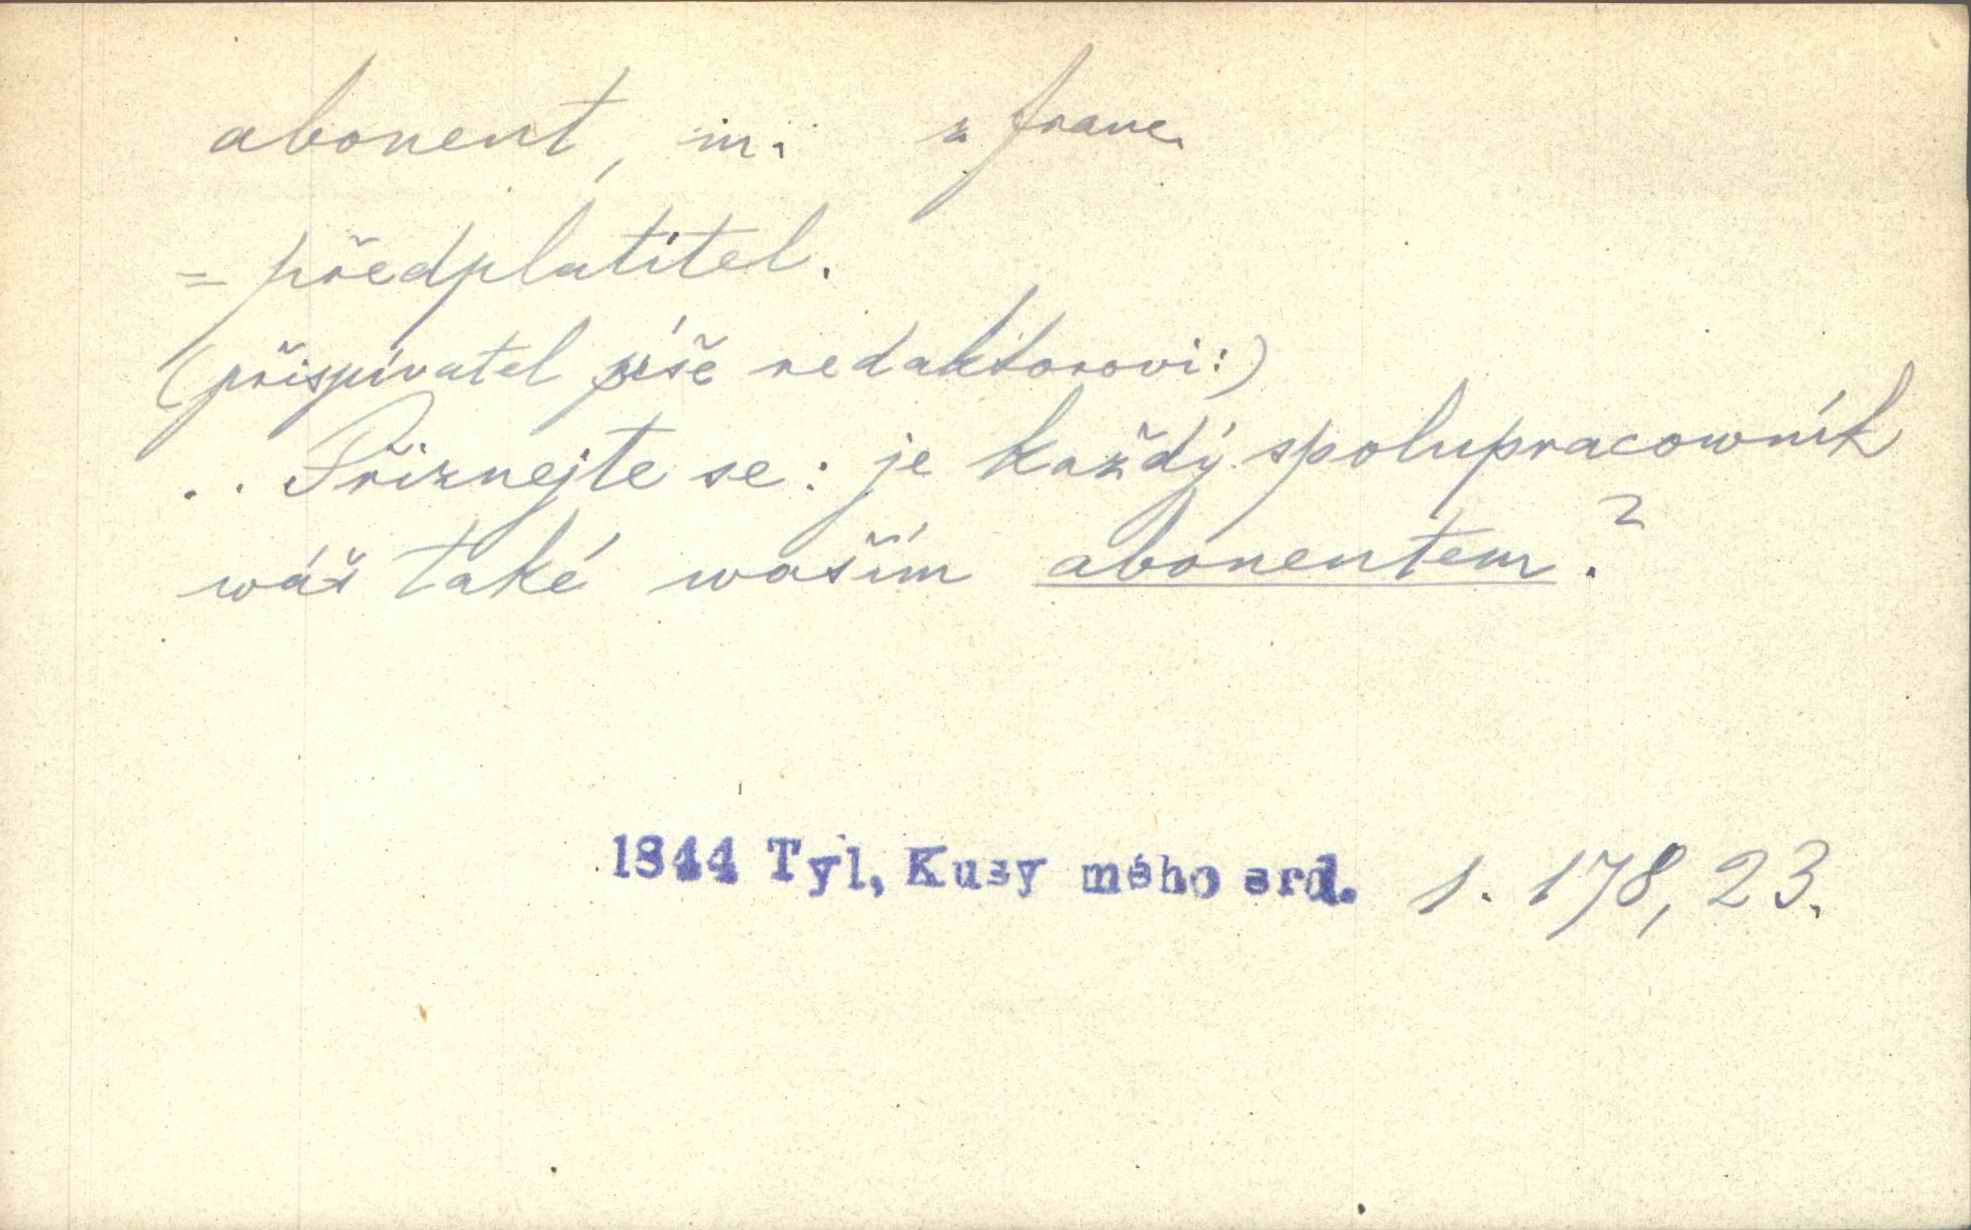 abonent, m. z franc.
= předplatitel.
(přispívatel píše redaktorovi:)
.. Přiznejte se: je každý spolupracowník
wáš také waším abonentem?
1844 Tyl, Kusy mého srd. 1. 178, 23.